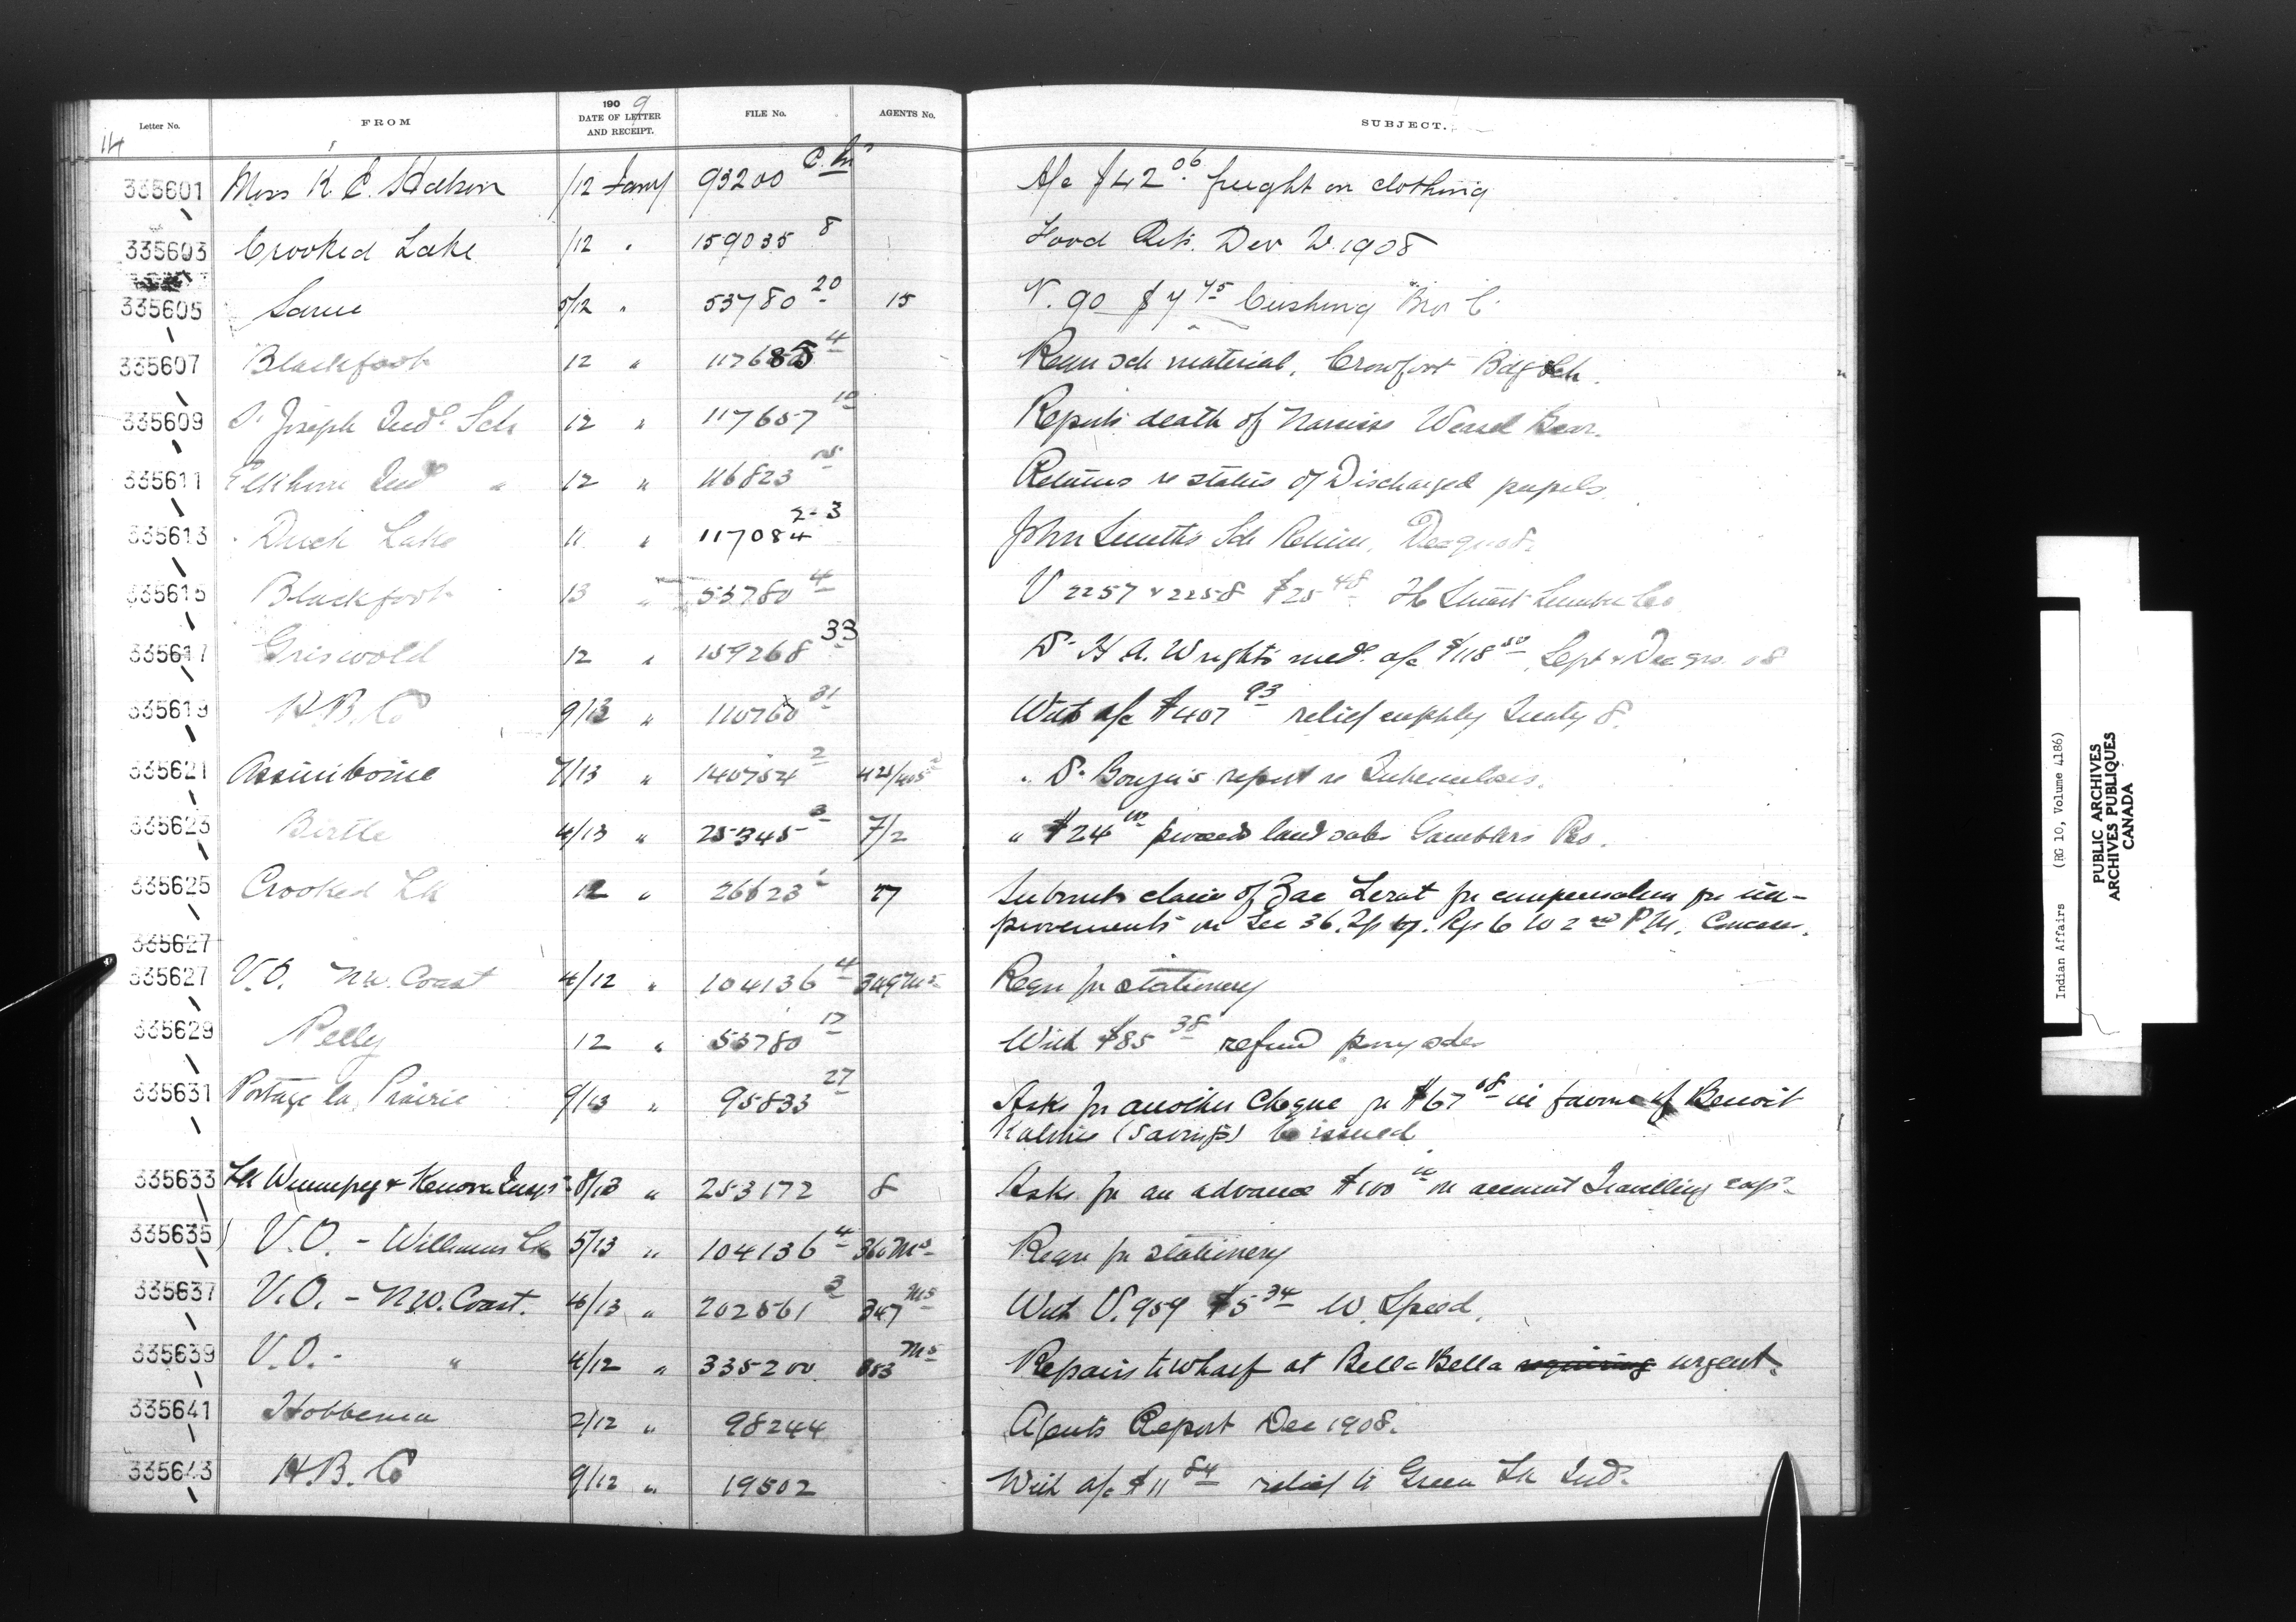 Letter No. FROM 1909 DATE OF LETTER AND RECEIPT. FILE No. AGENTS No. SUBJECT.
14
335601 Miss K. E. 12 Jany 93200 A/c $42.06 freight on clothing
335603 Crooked Lake /12 " 159035 8 Food Ret. 1908
335605 Same 5/12 " 53780 20 15 V. 90 $7 45 Cushing Bros C
335607 Blackfoot 12 " 117685 4 Requ sch material, Crowfoot Bdg Sch.
335609 St Joseph Indl Sch 12 " 117657 10 Reports death of Narcisse Weasel Bear.
335611 Elkhorn Indl " 12 " 116823 Returns re status of Discharged pupils.
335613 Duck Lake 11 " 117084 2-3 John Smith's Sch Return,
335615 Blackfoot 13 " 53780 4 V 2257 & 2258 $25 48 Lumber Co
335617 Griswold 12 " 159268 33 Dr H A. Wright's med. a/c $118 50 Sept & Dec qrs. 08
335619 H.B. Co 9/13 " 110760 31 With a/c $407 93 relief supply Treaty 8.
335621 Assiniboine 7/13 " 140754 2 " Dr report re Tuberculosis.
335623 Birtle 4/13 " 25345 3 7/2 " $24 00 proceeds land sales Gamblers Res.
335625 Crooked Lk 12 " 26623 77 Submits claim of Zac Lerat for compensation for im-
provements on Sec 36. Tp Rge 6 W 2nd P.M.
335627
335627 V.O. N.W. Coast 4/12 " 104136 4 349 Ms Requ for stationery
335629 Pelly 12 " 53780 17 With $85 38 refund
335631 Portage la Prairie 9/13 " 95833 27 Asks for another Cheque for $67 68 in favour of Benoit
(Savings) be issued
335633 Lk Winnipeg & Kenora Insp 8/13 " 253172 8 Asks for an advance $100 00 on account Travelling exps
335635 V.O. - Williams Lk 5/13 " 104136 4 360 Ms Requ for stationery
335637 V.O. - N.W. Coast. 4/13 " 202561 3 347 Ms With V. 959 $5 34 W. Speed.
335639 V.O. - " 4/12 " 335200 353 Ms Repairs to wharf at Bella Bella requiring urgent.
335641 Hobbema 2/12 " 98244 Agents Report Dec 1908.
335643 H.B. Co 9/12 " 19502 With a/c $11 84 relief to Green Lk Inds
Indian Affairs (RG 10, Volume 4186)
PUBLIC ARCHIVES
ARCHIVES PUBLIQUES
CANADA